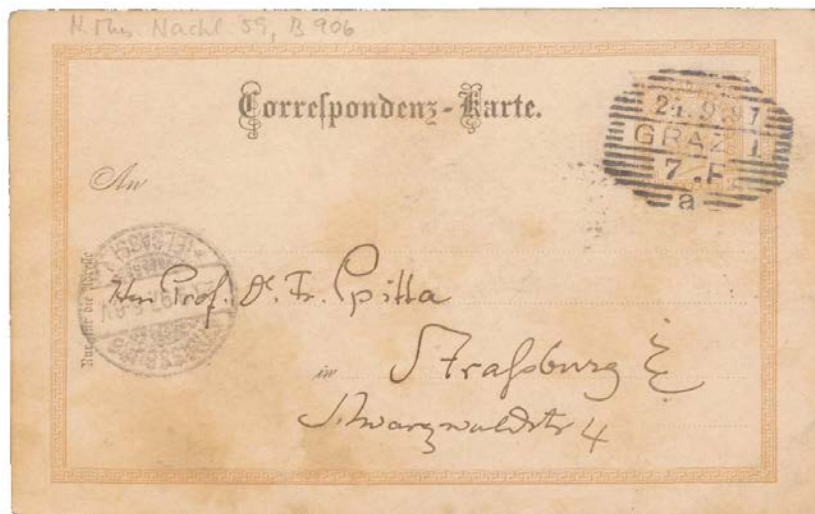 N. Mus. Nachl. 59, B 906
Correspondenz-Karte.
9.97
GRAZ 1
7.F
a
An
Nur für die Adresse
Herr Prof. Dr. Fr. Spitta
in Straßburg E
Schwarzwaldstr 4